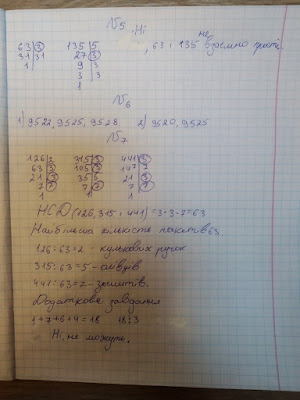 №5. Ні
63 | 3   135 | 5   , 63 і 135 не взаємно прості.
31 | 31   27 | 3
1   9 | 3
3 | 3
1
№6
1) 9522, 9525, 9528   2) 9520, 9525
№7
126 | 2   315 | 3   441 | 3
63 | 3   105 | 3   147 | 7
21 | 3   35 | 5   21 | 3
7 | 7   7 | 7   7 | 7
1   1   1
НСД (126, 315 і 441) = 3·3·7=63
Найбільша кількість пакетів 63,
126:63=2 - кулькових ручок
315:63=5 - олівців
441:63=7 - зошитів.
Додаткове завдання
1+7+6+4=18   18:3
Ні, не можуть.